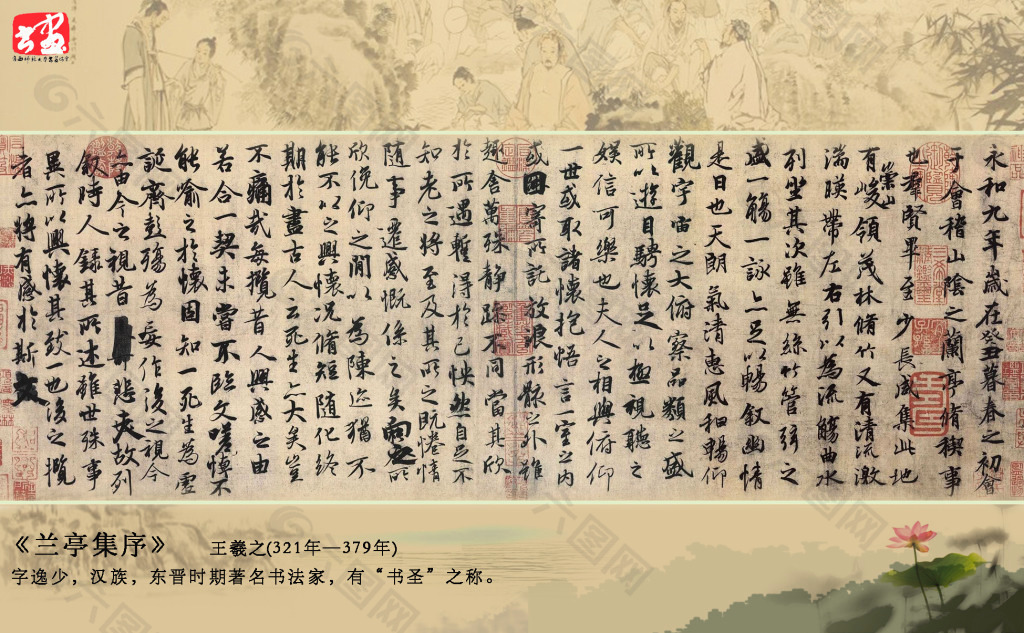 书画
永和九年歲在癸丑暮春之初會
于會稽山陰之蘭亭脩稧事
也羣賢畢至少長咸集此地
有崇山峻領茂林脩竹又有清流激
湍暎帶左右引以為流觴曲水
列坐其次雖無絲竹管弦之
盛一觴一詠亦足以暢叙幽情
是日也天朗氣清惠風和暢仰
觀宇宙之大俯察品類之盛
所以遊目騁懷足以極視聽之
娛信可樂也夫人之相與俯仰
一世或取諸懷抱悟言一室之內
或因寄所託放浪形骸之外雖
趣舍萬殊静躁不同當其欣
於所遇蹔得於己怏然自足不
知老之將至及其所之既惓情
隨事遷感慨係之矣向之所
欣俛仰之閒以為陳迹猶不
能不以之興懷況脩短隨化終
期於盡古人云死生亦大矣豈
不痛哉每攬昔人興感之由
若合一契未嘗不臨文嗟悼不
能喻之於懷固知一死生為虛
誕齊彭殤為妄作後之視今
亦由今之視昔悲夫故列
叙時人錄其所述雖世殊事
異所以興懷其致一也後之攬
者亦將有感於斯文
《兰亭集序》 王羲之(321年—379年)
字逸少，汉族，东晋时期著名书法家，有“书圣”之称。
六图网